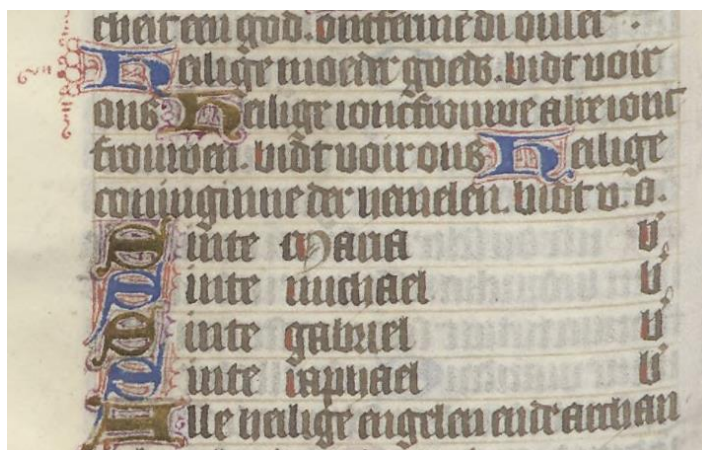 cheit een god. ontferme di onser.
Heilige moeder goeds. bidt voir
ons Heilige ioncfrouwe alre ionc
frouwen. bidt voir ons Heilige
coninginne der hemelen. bidt v. o.
Sinte Maria b
Sinte michael b
Sinte gabriel b
Sinte raphael b
Alle heilige engelen ende archan